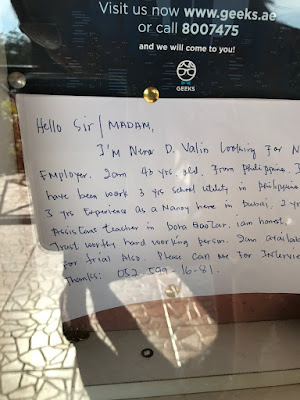 Visit us now www.geeks.ae
or call 8007475
and we will come to you!
GEEKS
Hello Sir / MADAM,
I'm Nena D. Valin Looking For N
Employer. I am 43 yrs. old. From Philippine. I
have been work 3 yrs school utility in Philippine
3 yrs Experience as a Nanny here in Dubai, 2 yr
Assistant teacher in Doha Qatar. iam honest
Trust worthy hard working person. I am availab
For trial Also. Please Call me For Intervie
Thanks: 052-599-16-81.